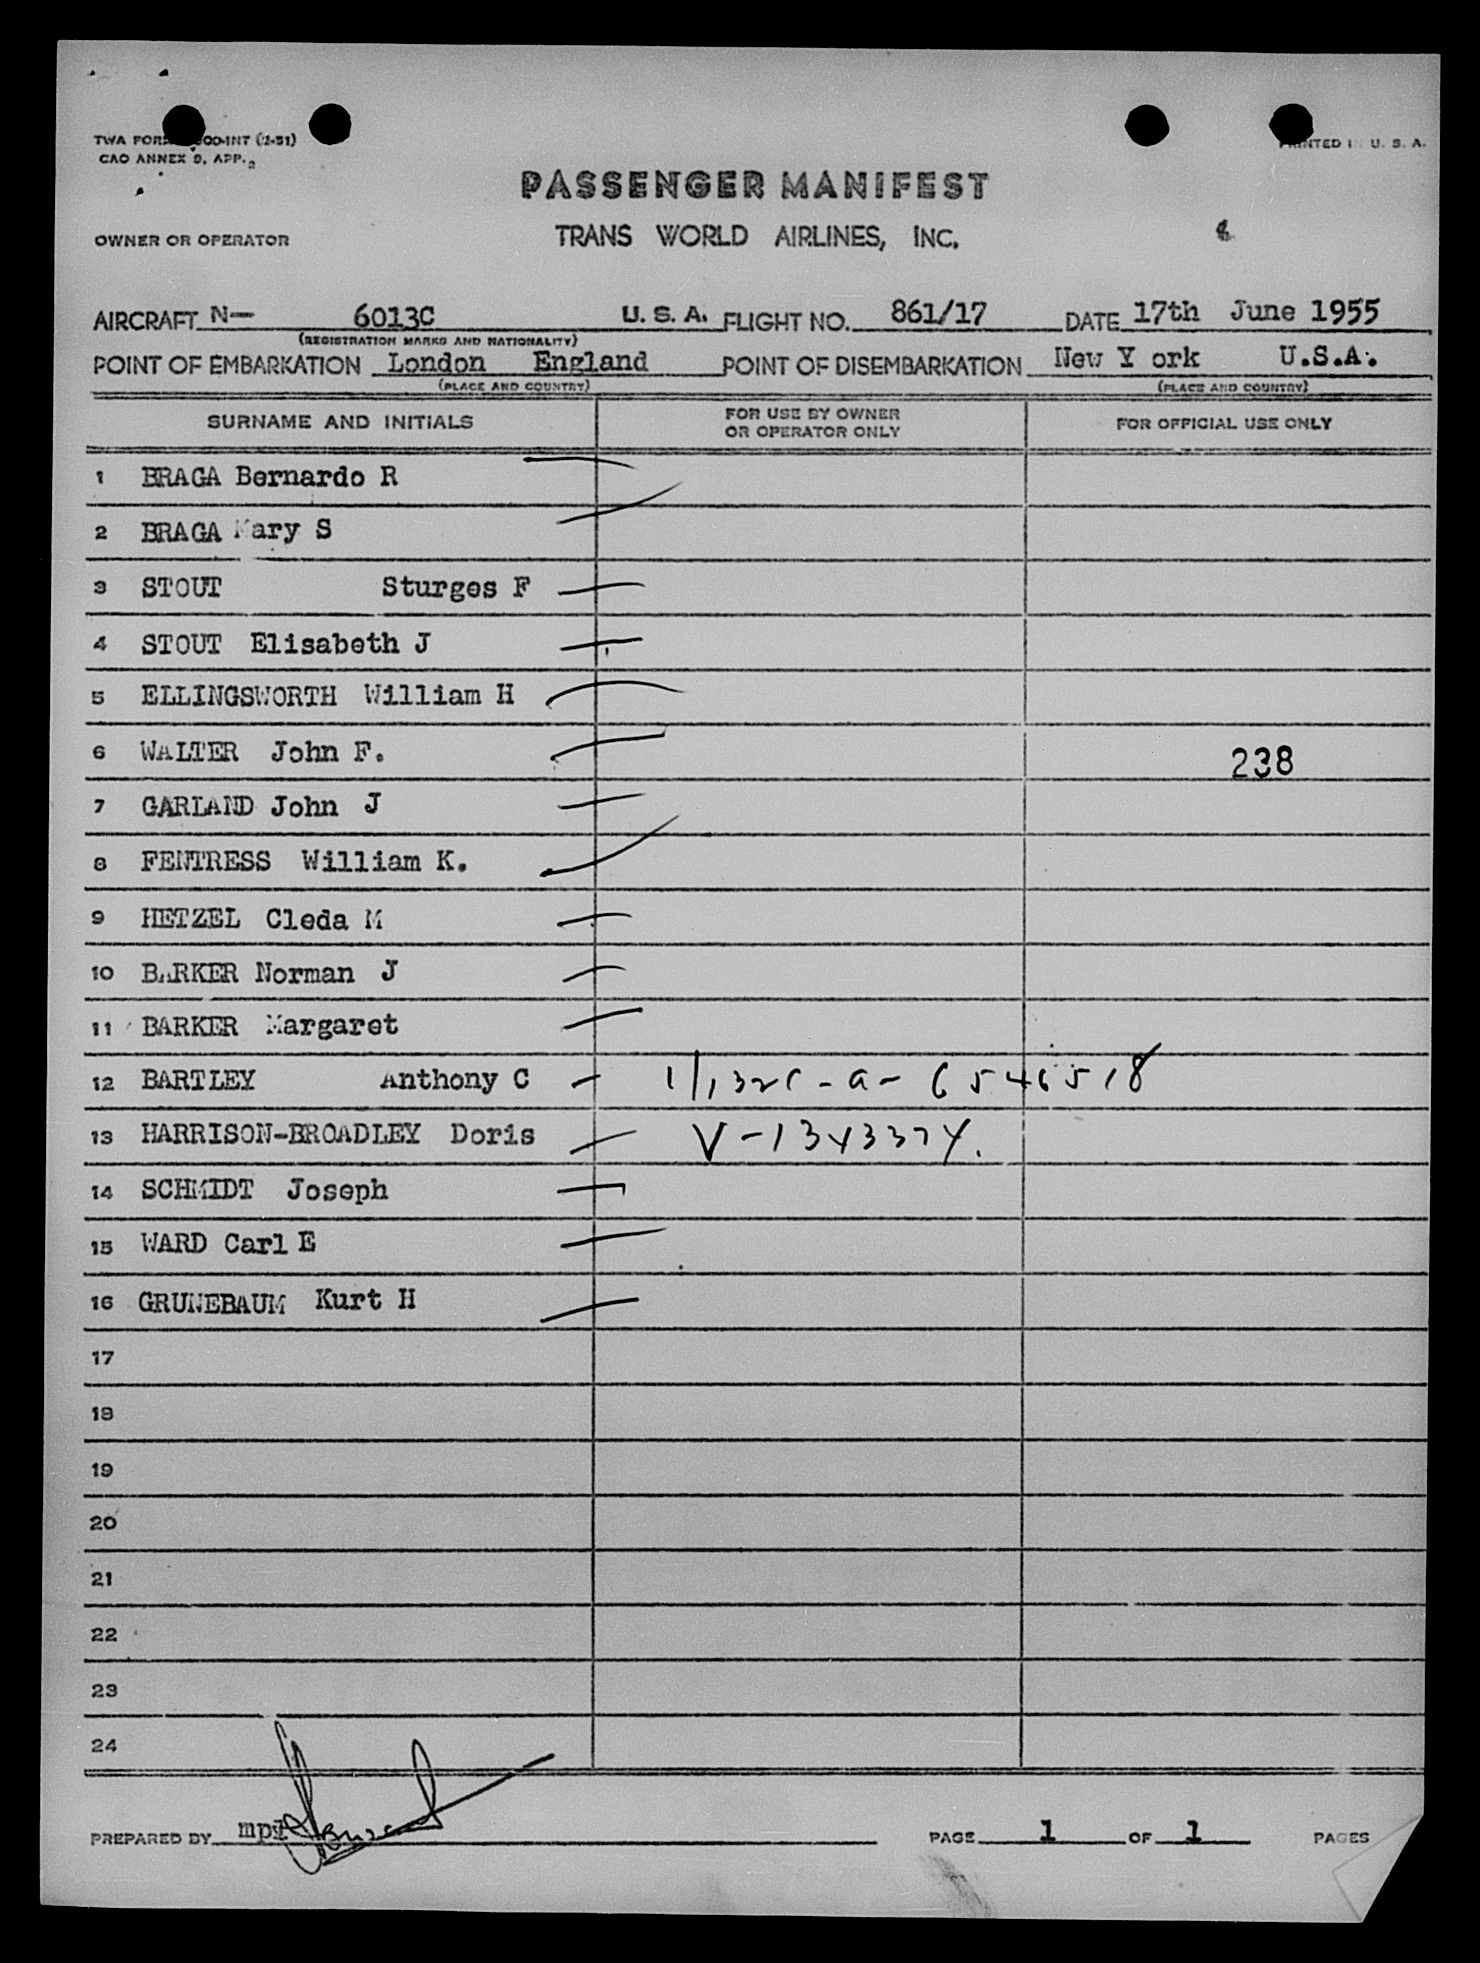 TWA FORM 00-INT (2-51)
CAO ANNEX 9, APP. 2
PRINTED IN U. S. A.
PASSENGER MANIFEST
OWNER OR OPERATOR
TRANS WORLD AIRLINES, INC.
AIRCRAFT N- 6013C U. S. A. FLIGHT NO. 861/17 DATE 17th June 1955
(REGISTRATION MARKS AND NATIONALITY)
POINT OF EMBARKATION London England POINT OF DISEMBARKATION New Y ork U.S.A.
(PLACE AND COUNTRY) (PLACE AND COUNTRY)
SURNAME AND INITIALS FOR USE BY OWNER OR OPERATOR ONLY FOR OFFICIAL USE ONLY
1 BRAGA Bernardo R
2 BRAGA Mary S
3 STOUT Sturges F
4 STOUT Elisabeth J
5 ELLINGSWORTH William H
6 WALTER John F. 238
7 GARLAND John J
8 FENTRESS William K.
9 HETZEL Cleda M
10 BARKER Norman J
11 BARKER Margaret
12 BARTLEY Anthony C
13 HARRISON-BROADLEY Doris V-1343374.
14 SCHMIDT Joseph
15 WARD Carl E
16 GRUNEBAUM Kurt H
17
18
19
20
21
22
23
24
PREPARED BY PAGE 1 OF 1 PAGES